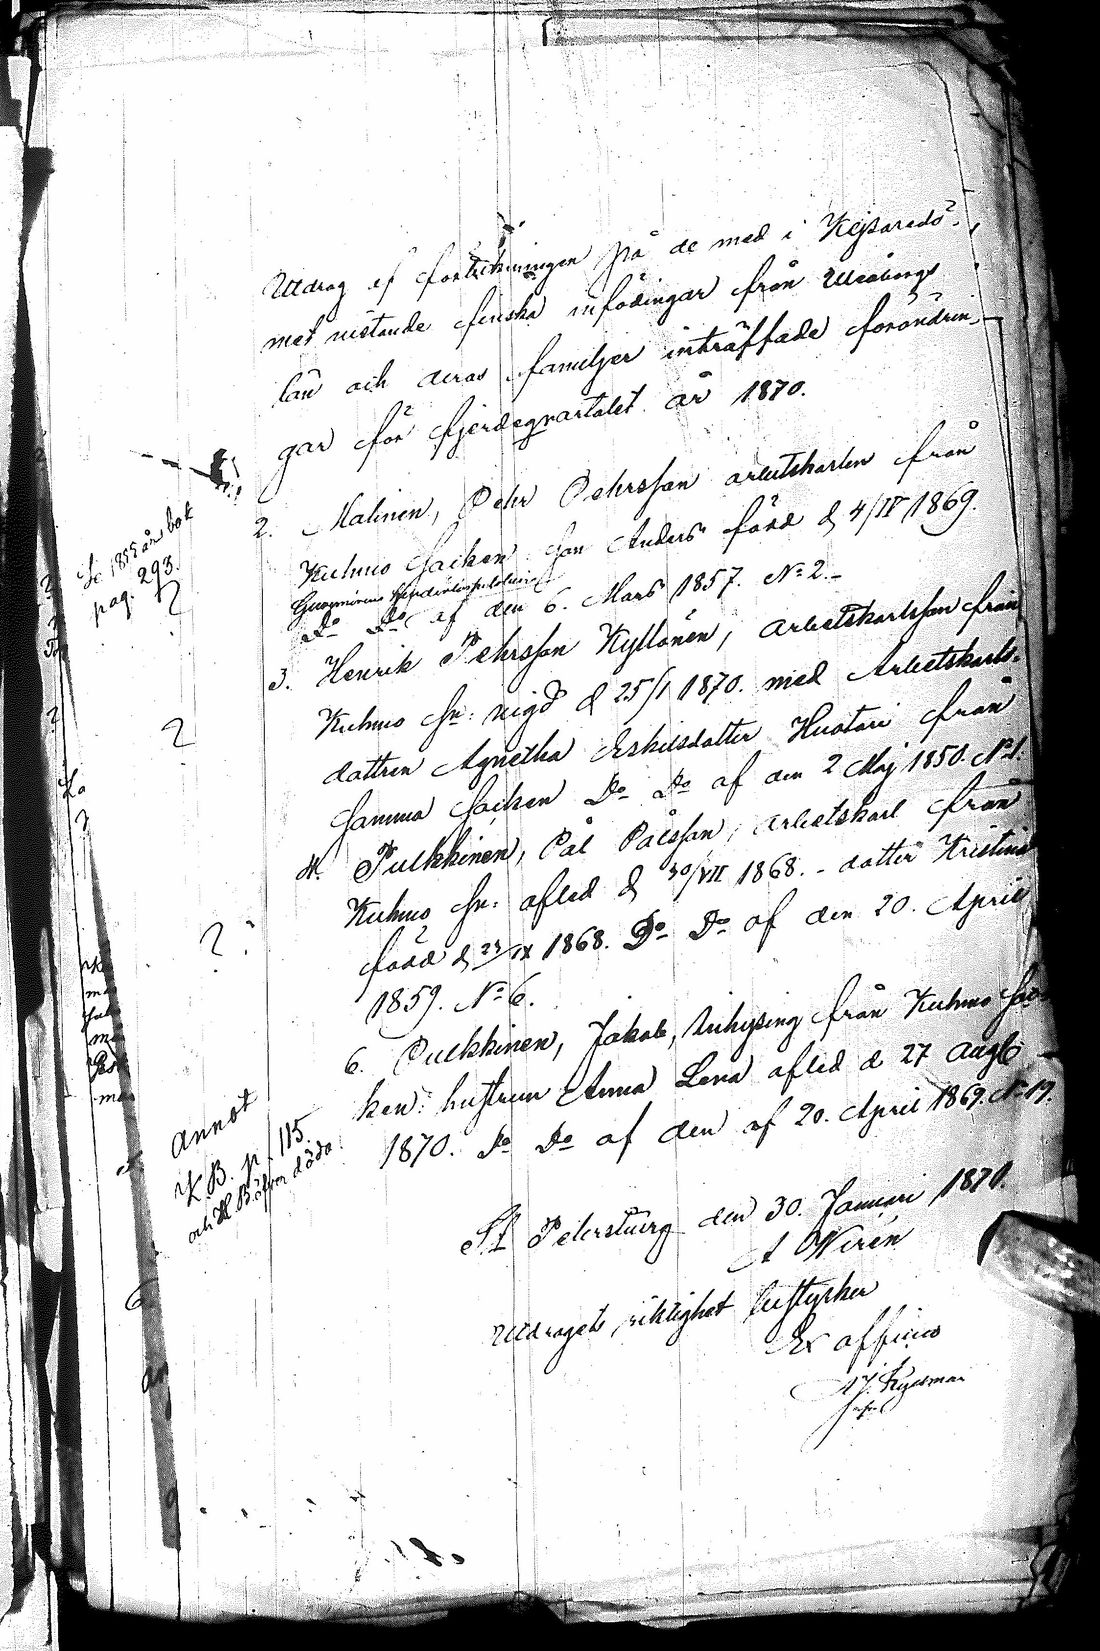 Utdrag af förtekningen på de med i Kejsaredö-
met vistande finska infödingar från Uleåborgs
län och deras familjer inträffade förändrin-
gar för fjerdeqvartalet år 1870.
2. Malinen, Pehr Pehrsson arbetskarlen från
Kuhmo Socken Son Anders född d 4/IV 1869.
Do Do af den 6. Mars 1857. No 2.-
3. Henrik Pehrsson Kyllönen, arbetskarlsson från
Kuhmo Sn: vigd d 25/1 1870. med Arbetskarls-
dottren Agnetha Eskilsdotter Huotari från
samma Socken Do Do af den 2 Maj 1850. No 1.
4. Pulkkinen, Pål Pålsson, arbetskarl från
Kuhmo Sn: afled d 30/VII 1868. - dotter Kristina
född d 23/IX 1868. Do Do af den 20. April
1859. No 6.
6. Pulkkinen, Jakob, Inhysing från Kuhmo Soc-
ken: hustrun Anna Lena afled d 27 Augti
1870. Do Do af den af 20. April 1869. No 19.
St Petersburg den 30. Januari 1871.
A Wirén
Utdragets riktighet bestyrker
Ex officio
Se 1855 års bok
pag. 293.
?
?
?
Annot
K.B. p. 115.
och döda